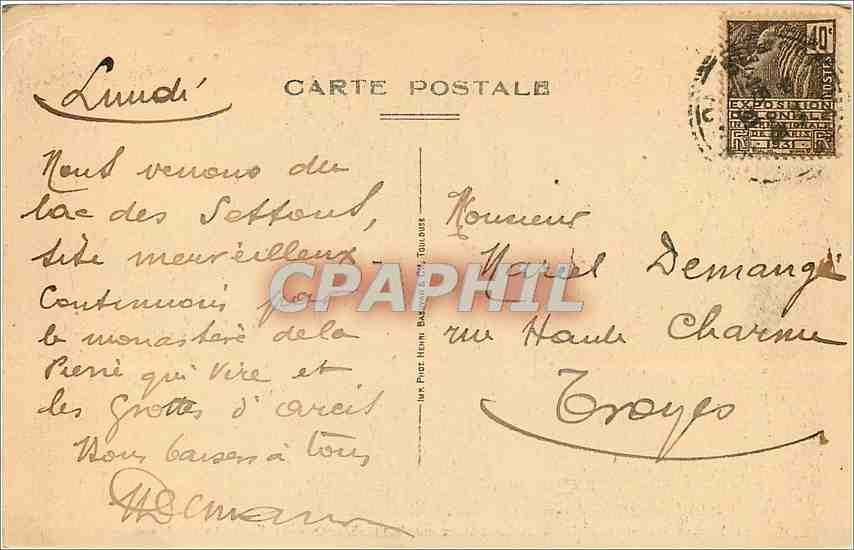 Lundi
CARTE POSTALE
40c
POSTES
EXPOSITION
COLONIALE
INTERNATIONALE
DE PARIS
1931
Nous venons du
lac des Settons,
site merveilleux -
Continuons par
le monastère de la
Pierre qui Vire et
les Grottes d'arcis
Bons baisers à tous
Monsieur
Marcel Demange
rue Haute Charme
Troyes
IMP. PHOT. HENRI BASUYAU & Cie, TOULOUSE
CPAPHIL